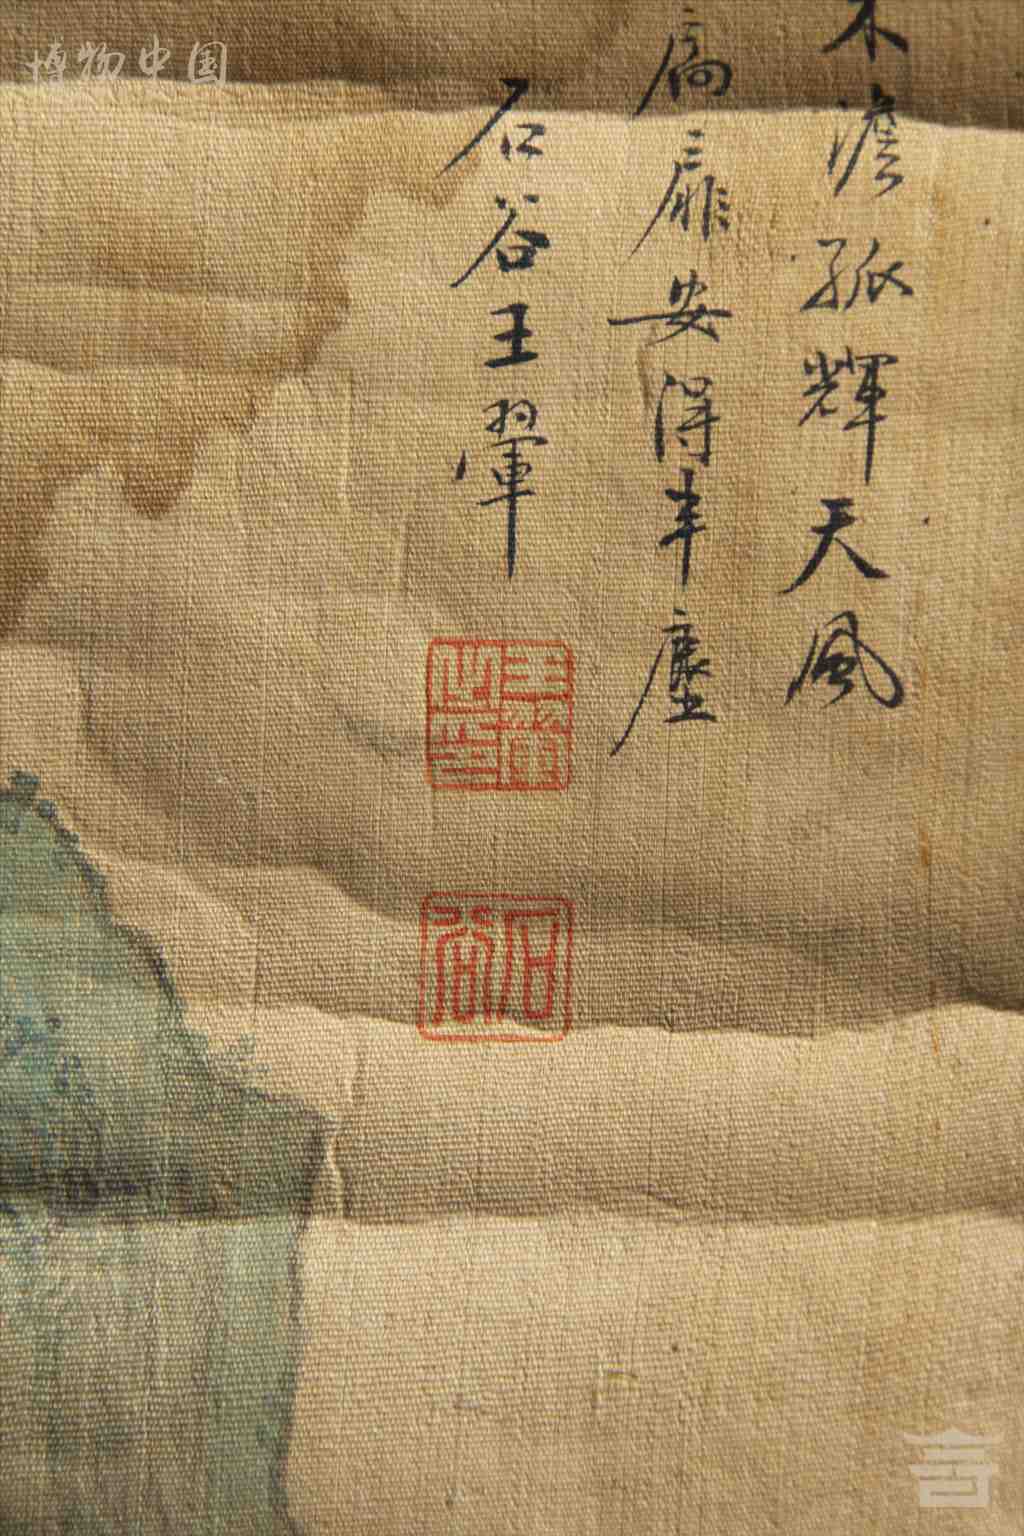 木澹孤輝天風
扃扉安得半塵
石谷王翚
王翬之印
石谷
博物中国